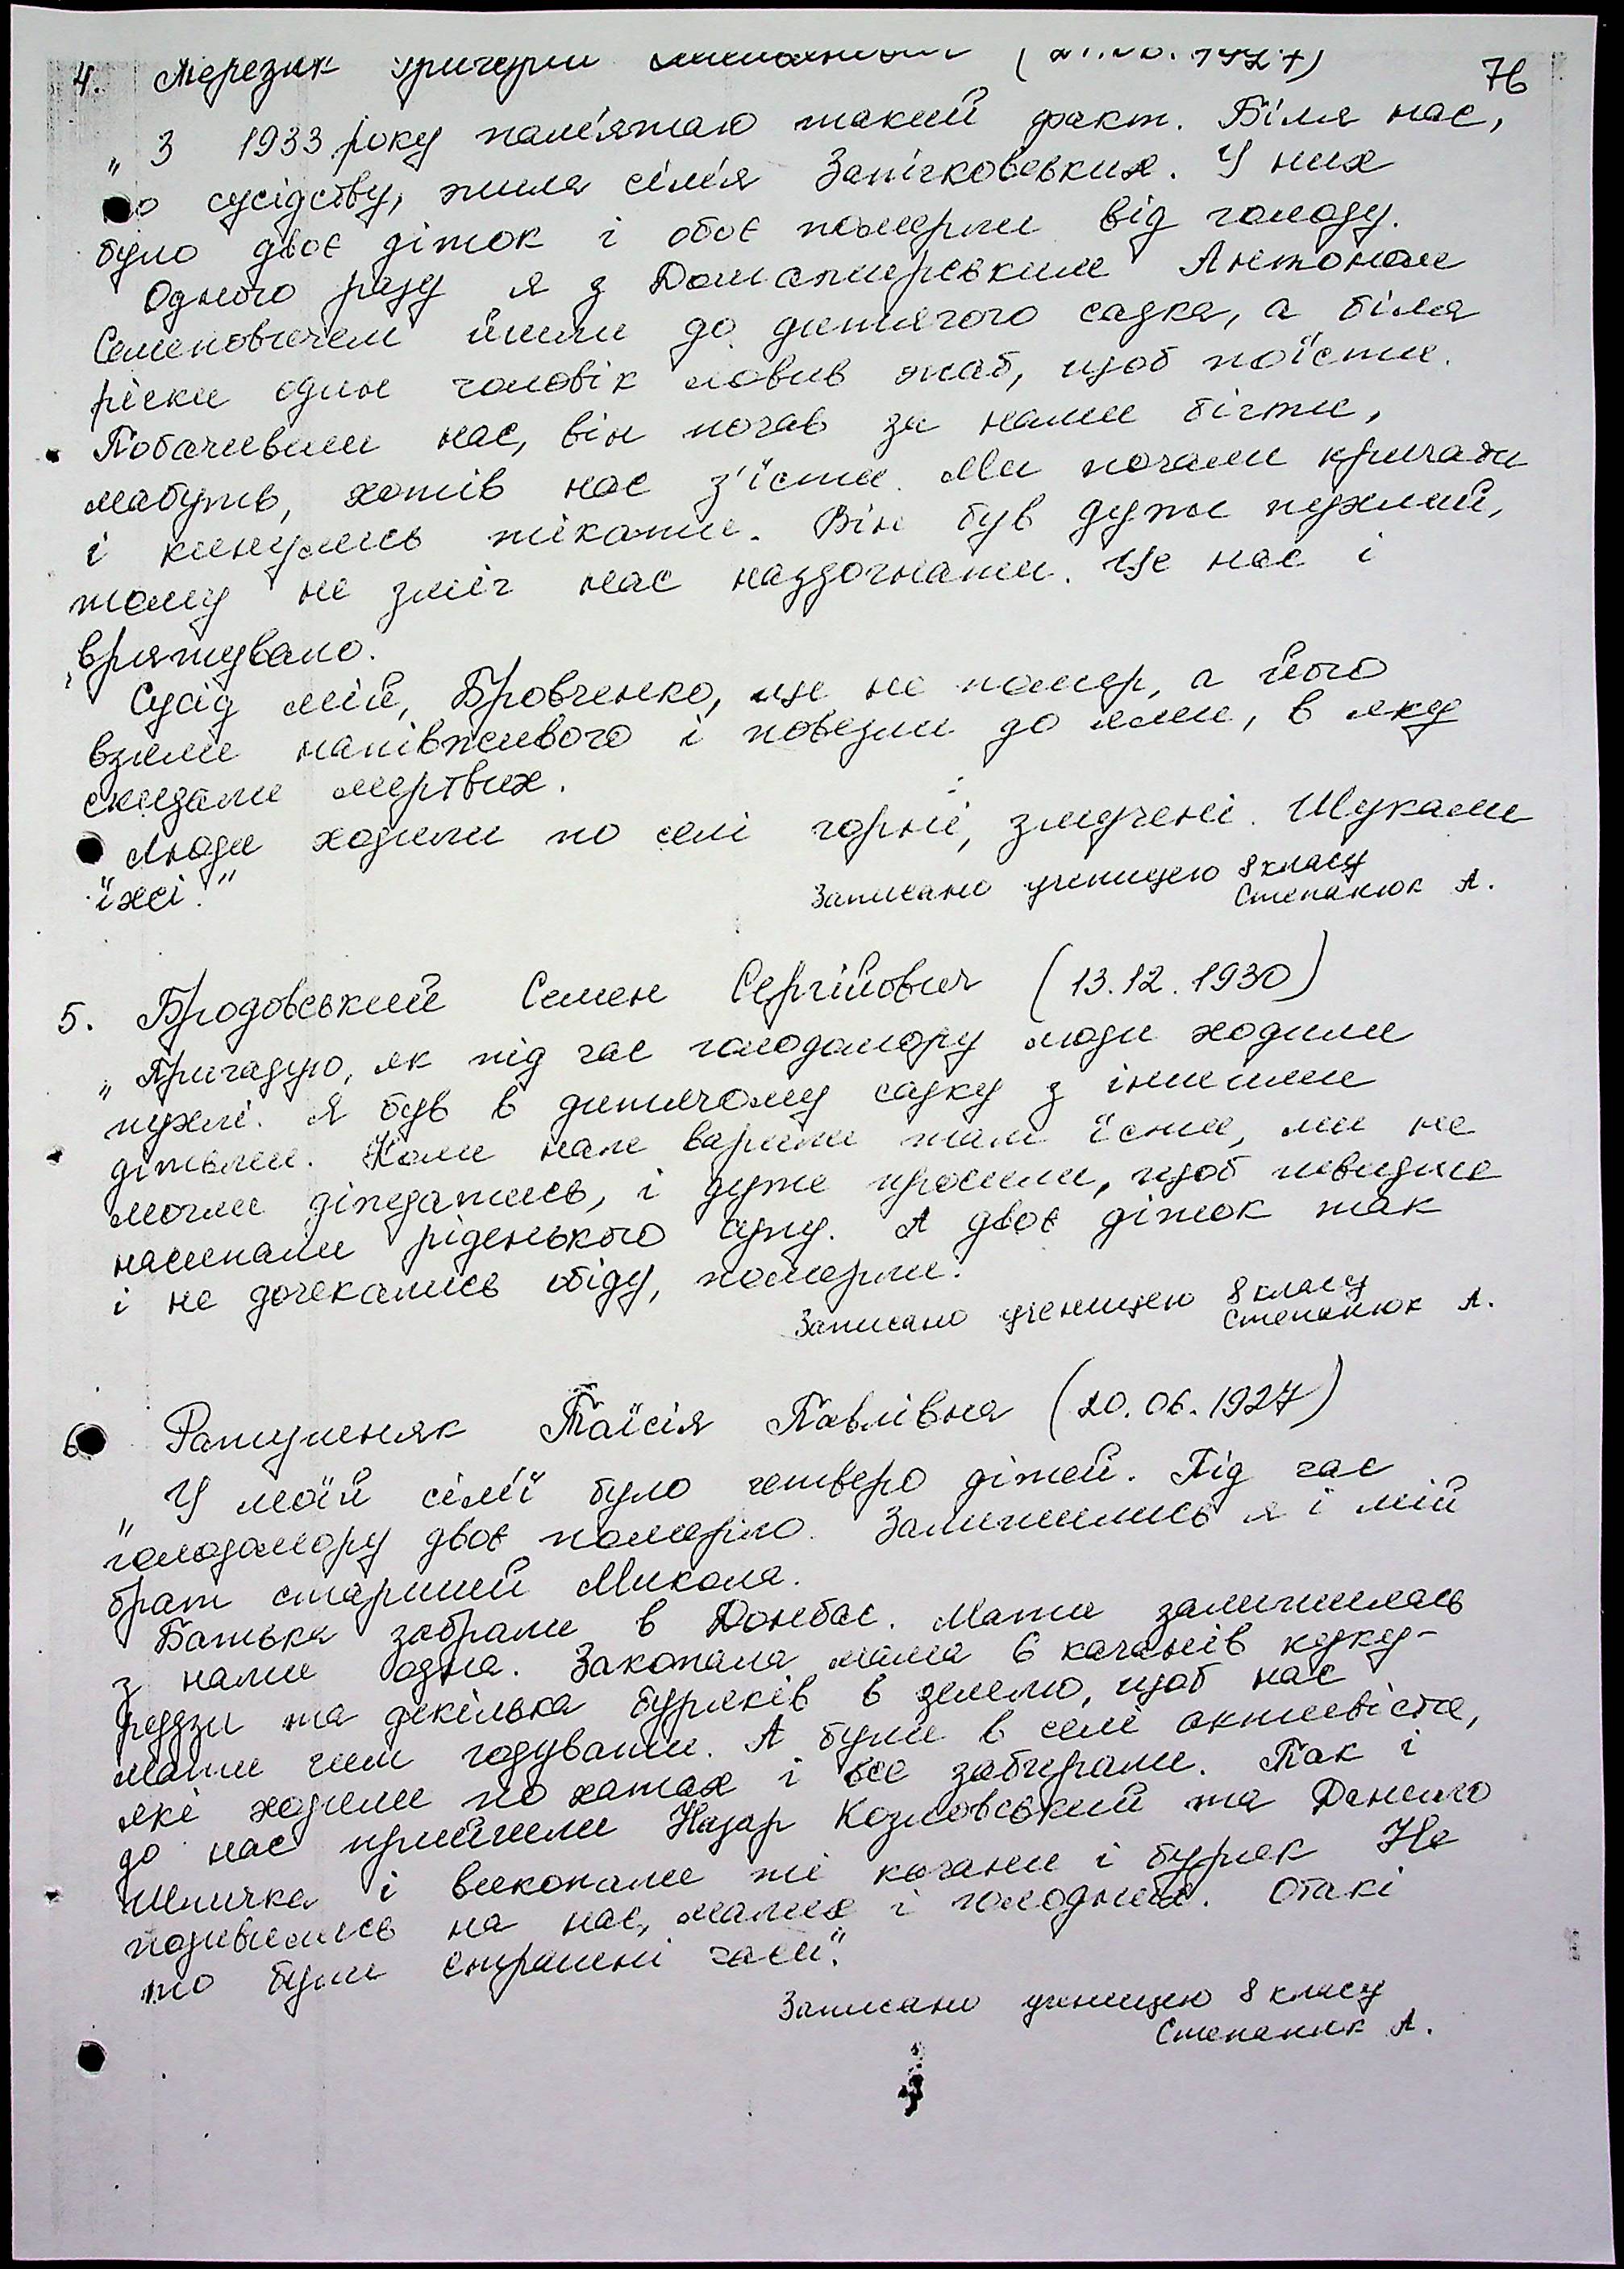 76
4. Мерезюк Григорій (21.10.1927)
„З 1933 року пам'ятаю такий факт. Біля нас,
по сусідству, жила сім'я Запічковських. У них
було двоє діток і обоє померли від голоду.
Одного разу я з Домашпирським Антоном
Семеновичем йшли до дитячого садка, а біля
річки один чоловік ловив жаб, щоб поїсти.
Побачивши нас, він почав за нами бігти,
мабуть, хотів нас з'їсти. Ми почали кричати
і кинулись тікати. Він був дуже пухлий,
тому не зміг нас наздогнати. Це нас і
врятувало.
Сусід мій, Бровченко, ще не помер, а його
взяли напівживого і повезли до ями, в яку
скидали мертвих.
Люди ходили по селі чорні, змучені. Шукали
їжі."
Записано ученицею 8 класу
Степанюк А.
5. Бродовський Семен Сергійович (13.12.1930)
„Пригадую, як під час голодомору люди ходили
пухлі. Я був в дитячому садку з іншими
дітьми. Коли нам варили там їсти, ми не
могли діждатись, і дуже просили, щоб швидше
насипали ріденького супу. А двоє діток так
і не дочекались обіду, померли."
Записано ученицею 8 класу
Степанюк А.
6 Ратушняк Таїсія Павлівна (20.06.1927)
„У моїй сім'ї було четверо дітей. Під час
голодомору двоє померло. Залишились я і мій
брат старший Микола.
Батька забрали в Донбас. Мати залишилась
з нами одна. Закопала мама 6 качанів куку-
рудзи та декілька буряків в землю, щоб нас
мати чим годувати. А були в селі активісти,
які ходили по хатах і все забирали. Так і
до нас прийшли Назар Козловський та Данило
Шпичка і викопали ті качани і буряк Не
подивились на нас, малих і голодних. Отакі
то були страшні часи".
Записано ученицею 8 класу
Степанюк А.